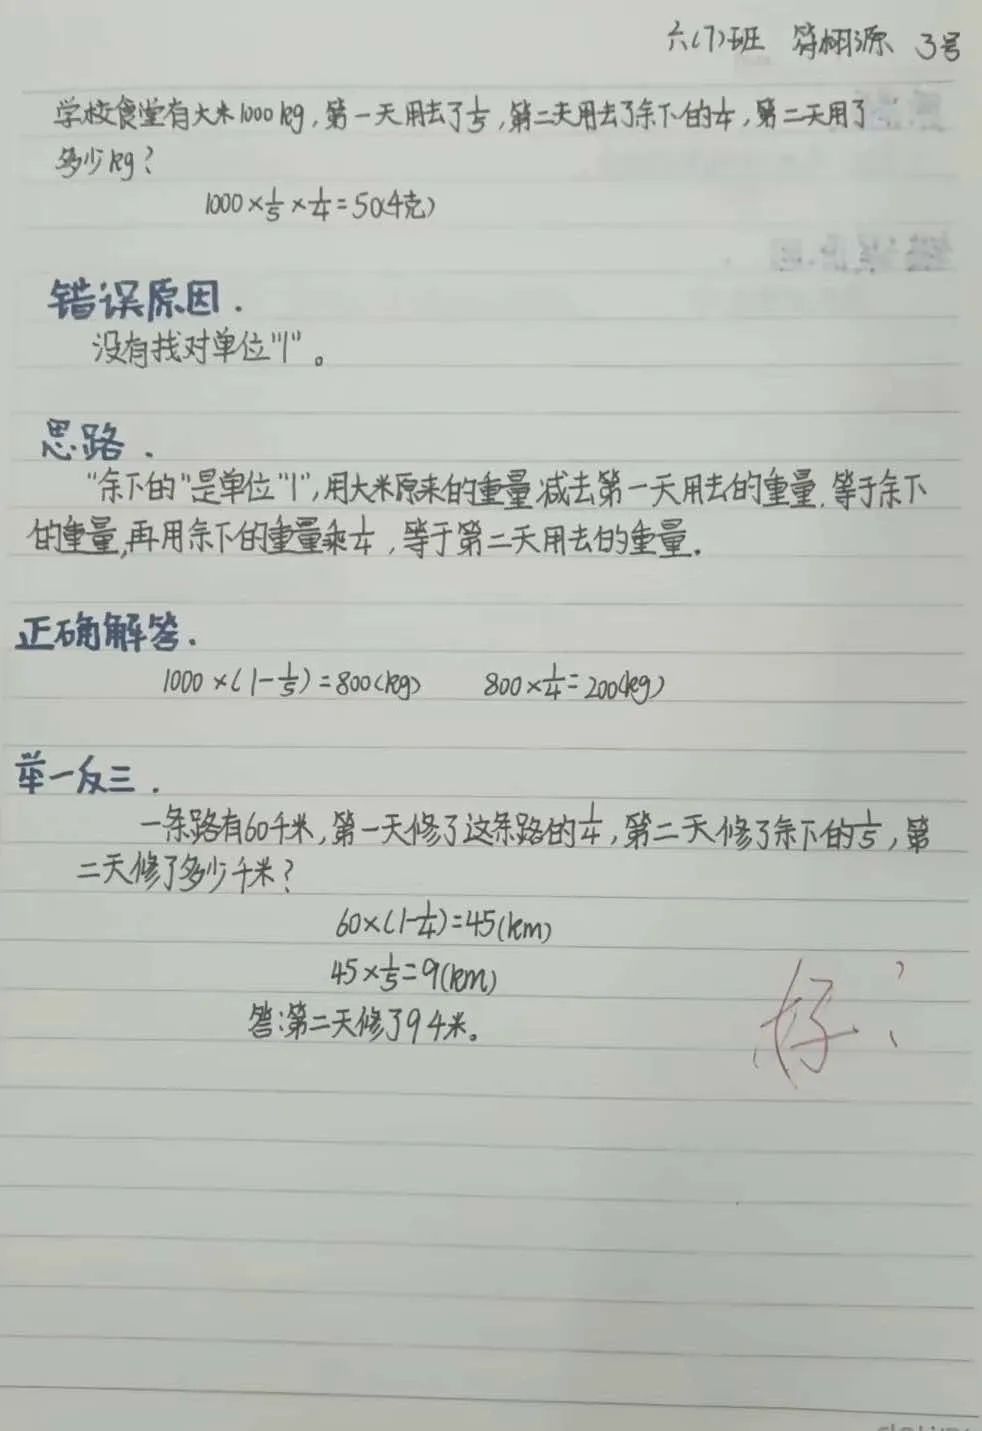 六(7)班 符栩源 3号
学校食堂有大米1000kg,第一天用去了1/5,第二天用去了余下的1/4,第二天用了
多少kg?
1000×1/5×1/4=50(千克)
错误原因.
没有找对单位"1"。
思路.
"余下的"是单位"1",用大米原来的重量减去第一天用去的重量,等于余下
的重量,再用余下的重量乘1/4,等于第二天用去的重量.
正确解答.
1000×(1-1/5)=800(kg) 800×1/4=200(kg)
举一反三.
一条路有60千米,第一天修了这条路的1/4,第二天修了余下的1/5,第
二天修了多少千米?
60×(1-1/4)=45(km)
45×1/5=9(km)
答:第二天修了9千米。
好